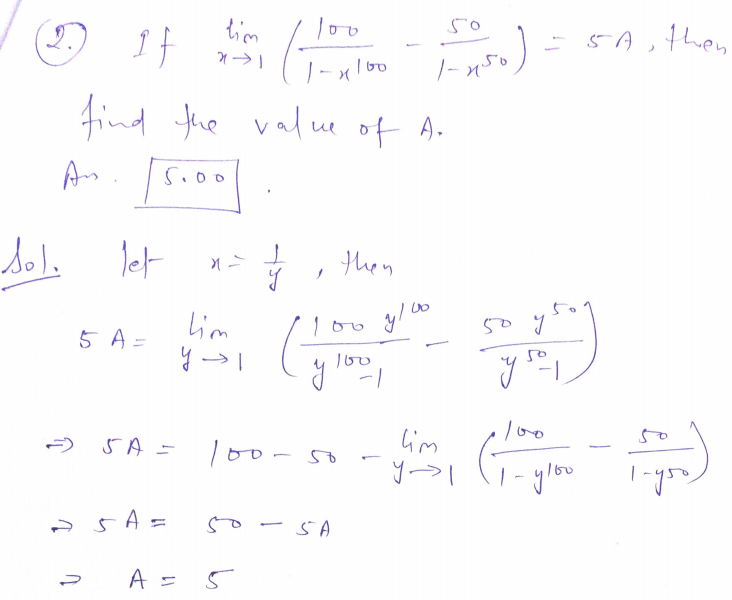 2. If lim x→1 (100/(1-x^100) - 50/(1-x^50)) = 5A, then
find the value of A.
An. 5.00.
Sol. let x = 1/y, then
5A = lim y→1 (100 y^100/(y^100-1) - 50 y^50/(y^50-1))
⇒ 5A = 100 - 50 - lim y→1 (100/(1-y^100) - 50/(1-y^50))
⇒ 5A = 50 - 5A
⇒ A = 5